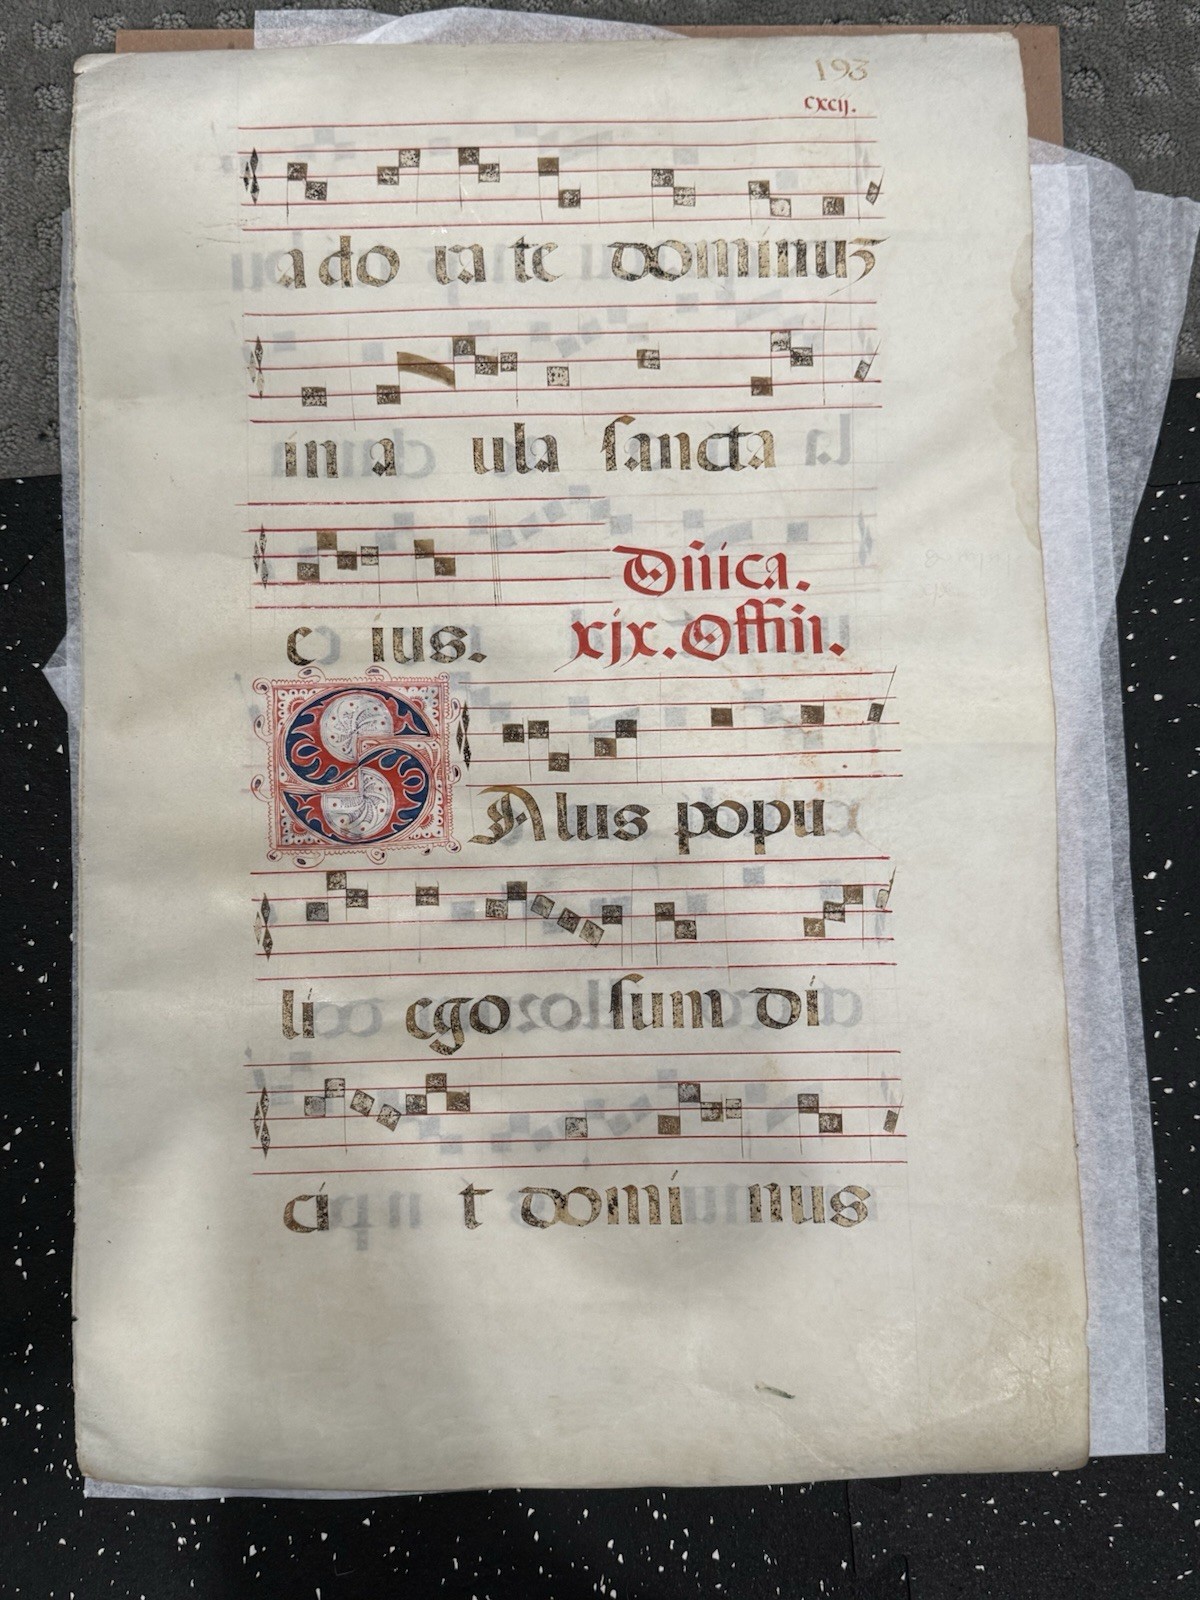 193
cxcij.
ado ra te dominuz
in a ula sancta
e ius.
Dñica.
xix. Offiñ.
SAlus popu
li ego sum di
ci t domi nus